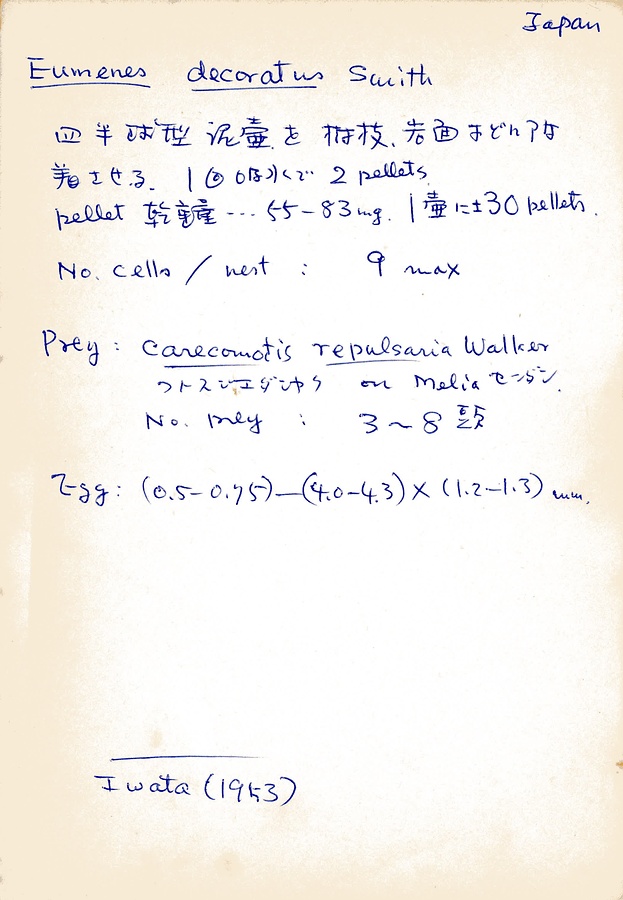 Japan
Eumenes decoratus Smith
四半球型泥壷を樹枝、岩面などに
着させる. 1回の吸水で 2 pellets.
pellet 乾重量 … 55-83mg. 1壷に±30 pellets.
No. cells / nest : 9 max
Prey: Carecomotis repulsaria Walker
フトスジエダシャク on Melia センダン.
No. prey : 3~8頭
Egg: (0.5-0.75)—(4.0-4.3)×(1.2-1.3) mm.
Iwata (1953)